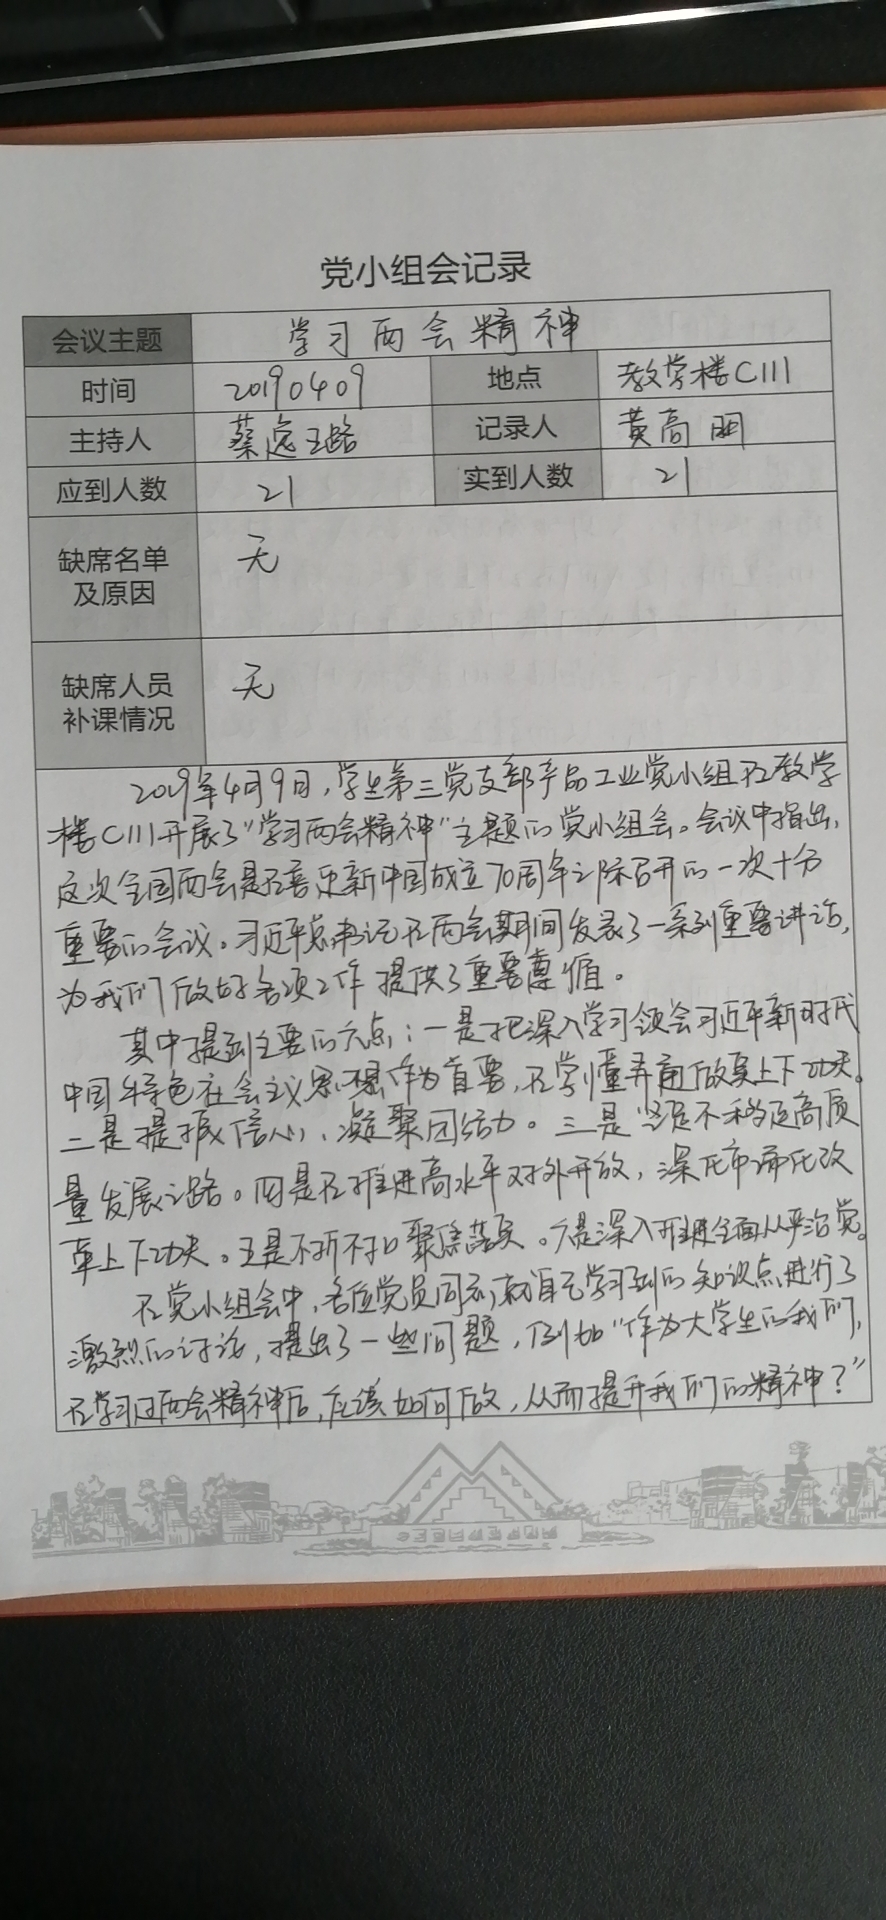 党小组会记录
会议主题 学习两会精神
时间 20190409 地点 教学楼C111
主持人 蔡逸璐 记录人 黄高明
应到人数 21 实到人数 21
缺席名单
及原因 无
缺席人员
补课情况 无
2019年4月9日,学生第三党支部产品工业党小组在教学
楼C111开展了"学习两会精神"主题的党小组会。会议中指出,
这次全国两会是在喜迎新中国成立70周年之际召开的一次十分
重要的会议。习近平总书记在两会期间发表了一系列重要讲话,
为我们做好各项工作提供了重要遵循。
其中提到主要的六点:一是把深入学习领会习近平新时代
中国特色社会主义思想作为首要,在学懂弄通做实上下功夫。
二是提振信心、凝聚团结力。三是坚定不移走高质
量发展之路。四是在推进高水平对外开放,深化市场化改
革上下功夫。五是不折不扣聚焦落实。六是深入推进全面从严治党。
在党小组会中,各位党员同志就自己学习到的知识点进行了
激烈的讨论,提出了一些问题,例如"作为大学生的我们,
在学习过两会精神后,应该如何做,从而提升我们的精神?"